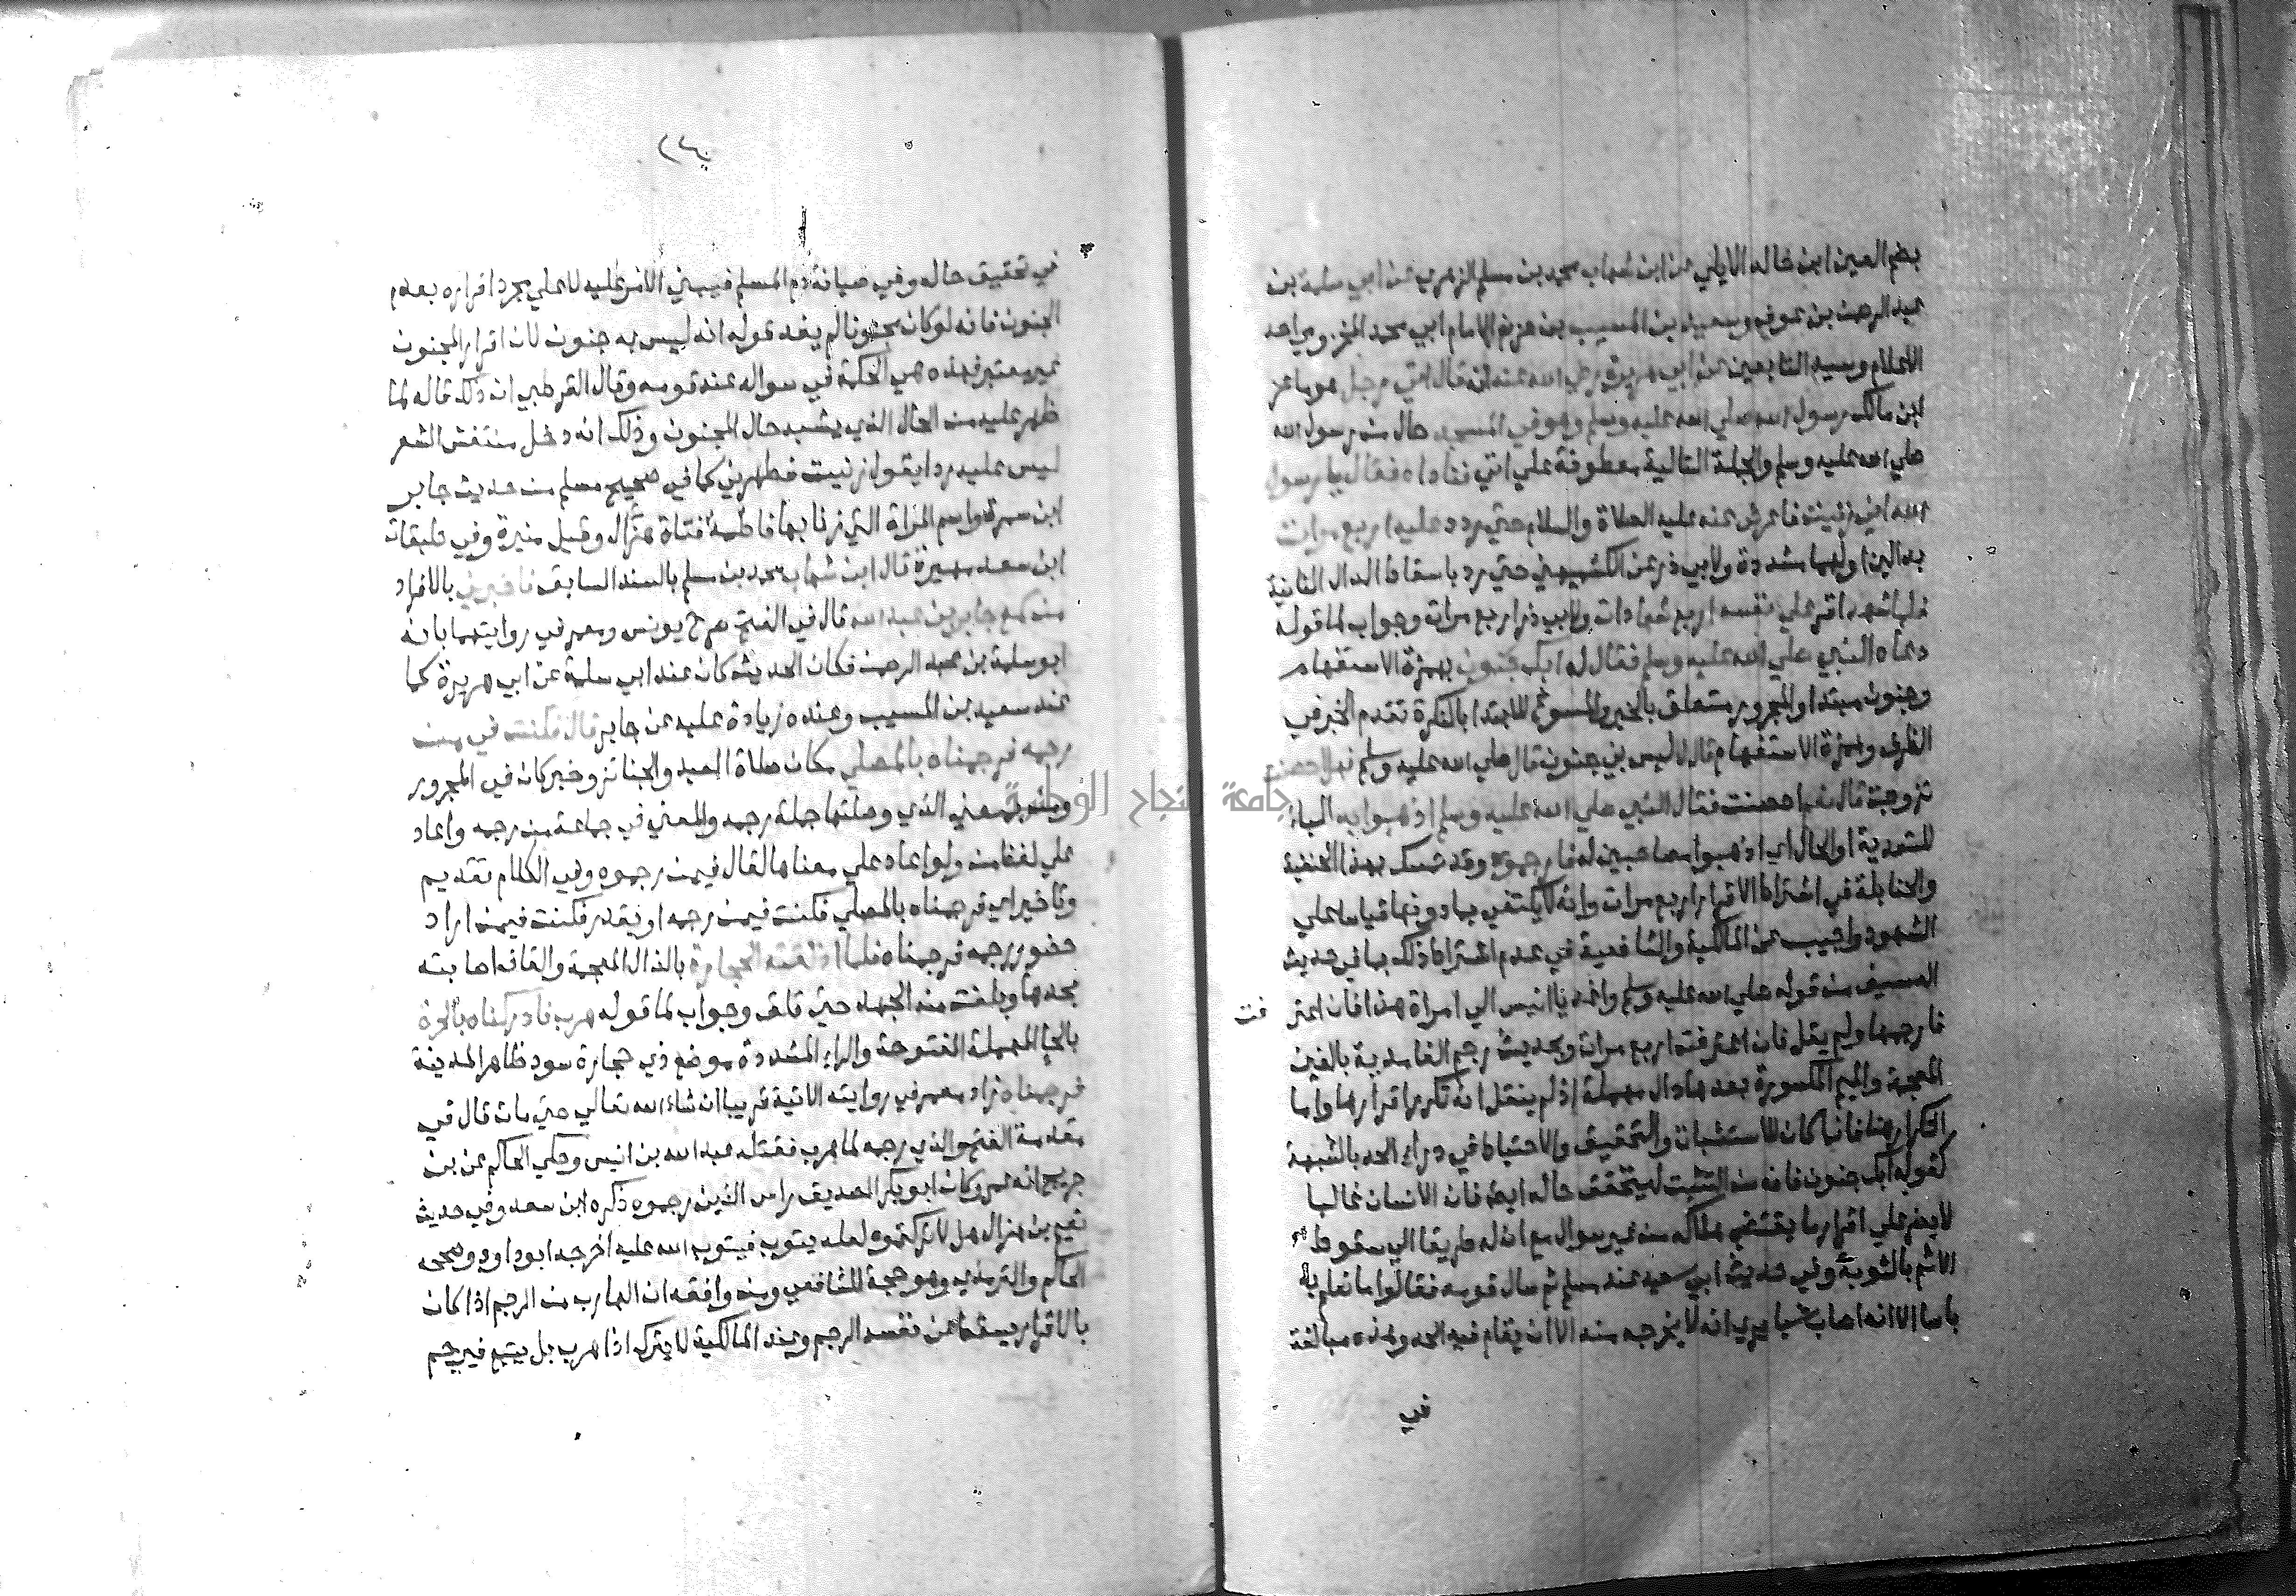 بضم العين ابن خالد الايلي عن ابن شهاب محمد بن مسلم الزهري عن ابي سلمة بن
عبد الرحمن بن عوف وسعيد بن المسيب بن حزن الامام ابي محمد المخزومي احد
الاعلام وسيد التابعين عن ابي هريرة رضي الله عنه انه قال اتي رجل هو ماعز
ابن مالك رسول الله صلي الله عليه وسلم وهو في المسجد حال من رسول الله
صلي الله عليه وسلم والجملة التالية معطوفة علي اتي فناداه فقال يا رسول
الله اني زنيت فاعرض عنه عليه الصلاة والسلام حتي ردد عليه اربع مرات
بدالين اولهما مشددة ولابي ذر عن الكشميهني حتي رد باسقاط الدال الثانية
فلما شهد اقر علي نفسه اربع شهادات ولابي ذر اربع مرات وجواب لما قوله
دعاه النبي صلي الله عليه وسلم فقال له ابك جنون بهمزة الاستفهام
وجنون مبتدا والمجرور متعلق بالخبر والمسوغ للابتدا بالنكرة تقدم الخبر في
الظرف وهمزة الاستفهام قال لا ليس بي جنون قال صلي الله عليه وسلم فهل احصنت
تزوجت قال نعم احصنت فقال النبي صلي الله عليه وسلم اذهبوا به الباء
للتعدية او الحال اي اذهبوا مصاحبين له فارجموه وقد تمسك بهذا الحنفية
والحنابلة في اشتراط الاقرار اربع مرات وانه لا يكتفي بما دونها قياسا علي
الشهود واجيب عن المالكية والشافعية في عدم اشتراط ذلك بما في حديث
العسيف من قوله صلي الله عليه وسلم واغد يا انيس الي امراة هذا فان اعتر فت
فارجمها ولم يقل فان اعترفت اربع مرات وبحديث رجم الغامدية بالغين
المعجمة والميم المكسورة بعدها دال مهملة اذ لم ينقل انه تكرر اقرارها واما
التكرار هنا فانما كان للاستثبات والتحقيق والاحتياط في درء الحد بالشبهة
كقوله ابك جنون فانه من التثبت ليتحقق حاله ايضا فان الانسان غالبا
لا يصر علي اقرار ما يقتضي هلاكه من غير سوال مع ان له طريقا الي سقوط
الاثم بالتوبة وفي حديث ابي سعيد عند مسلم ثم سال قومه فقالوا ما نعلم به
باسا الا انه اصاب شيا يري انه لا يخرجه منه الا ان يقام فيه الحد وهذه مبالغة
في
٢٤٠
في تحقيق حاله وفي صيانة دم المسلم فيبني الامر عليه لا علي مجرد اقراره بعدم
الجنون فانه لو كان مجنونا لم يفد قوله انه ليس به جنون لان اقرار المجنون
غير معتبر فهذه هي الحكمة في سواله عند قومه وقال القرطبي ان ذلك قاله لما
ظهر عليه من الحال الذي يشبه حال المجنون وذلك انه دخل منتفش الشعر
ليس عليه ردا يقول زنيت فطهرني كما في صحيح مسلم من حديث جابر
ابن سمرة واسم المراة التي زنا بها فاطمة فتاة هزال وقيل منيرة وفي طبقات
ابن سعد مهيرة قال ابن شهاب محمد بن مسلم بالسند السابق فاخبرني بالافراد
من سمع جابر بن عبد الله قال في الفتح صرح يونس ومعمر في روايتهما بانه
ابو سلمة بن عبد الرحمن فكان الحديث كان عند ابي سلمة عن ابي هريرة كما
عند سعيد بن المسيب وعنده زيادة عليه عن جابر قال فكنت في من
رجمه فرجمناه بالمصلي مكان صلاة العيد والجنائز وخبر كان في المجرور
ومن بمعني الذي وصلتها جملة رجمه والمعني في جماعة من رجمه واعاد
علي لفظ من ولو اعاد علي معناها لقال فيمن رجموه وفي الكلام تقديم
وتاخير اي فرجمناه بالمصلي فكنت فيمن رجمه او يقدر فكنت فيمن اراد
حضور رجمه فرجمناه فلما اذلقته الحجارة بالذال المعجمة والقاف اصابته
بحدها وبلغت منه الجهد حتي قلق وجواب لما قوله هرب فادركناه بالحرة
بالحاء المهملة المفتوحة والراء المشددة موضع ذي حجارة سود ظاهر المدينة
فرجمناه زاد معمر في روايته الاتية قريبا ان شاء الله تعالي حتي مات قال في
مقدمة الفتح والذي رجمه لما هرب فقتله عبد الله بن انيس وحكي الحاكم عن بن
جريج انه عمر وكان ابو بكر الصديق راس الذين رجموه ذكره ابن سعد وفي حديث
نعيم بن هزال هل لا تركتموه لعله يتوب فيتوب الله عليه اخرجه ابو داود وصححه
الحاكم والترمذي وهو حجة للشافعي ومن وافقه ان الهارب من الرجم اذا كان
بالاقرار يسقط عن نفسه الرجم وعند المالكية لا يترك اذا هرب بل يتبع فيرجم
جامعة النجاح الوطنية